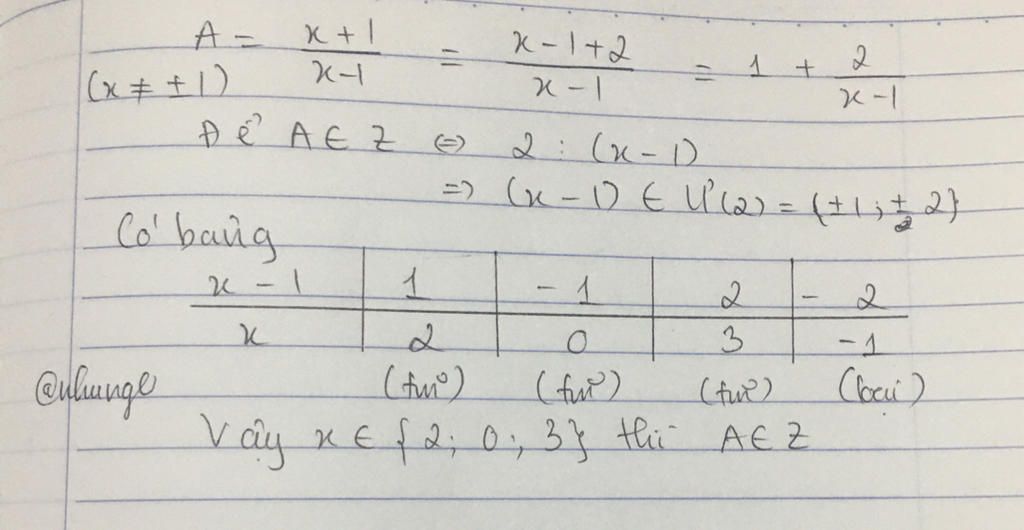 A = x+1/x-1 = x-1+2/x-1 = 1 + 2/x-1
(x ≠ ±1)
Để A ∈ Z ⇔ 2 : (x-1)
=> (x-1) ∈ Ư(2) = {±1; ±2}
Có bảng
x - 1 | 1 | -1 | 2 | -2
x | 2 | 0 | 3 | -1
@nhunge (tm) (tm) (tm) (loại)
Vậy x ∈ {2; 0; 3} thì A ∈ Z